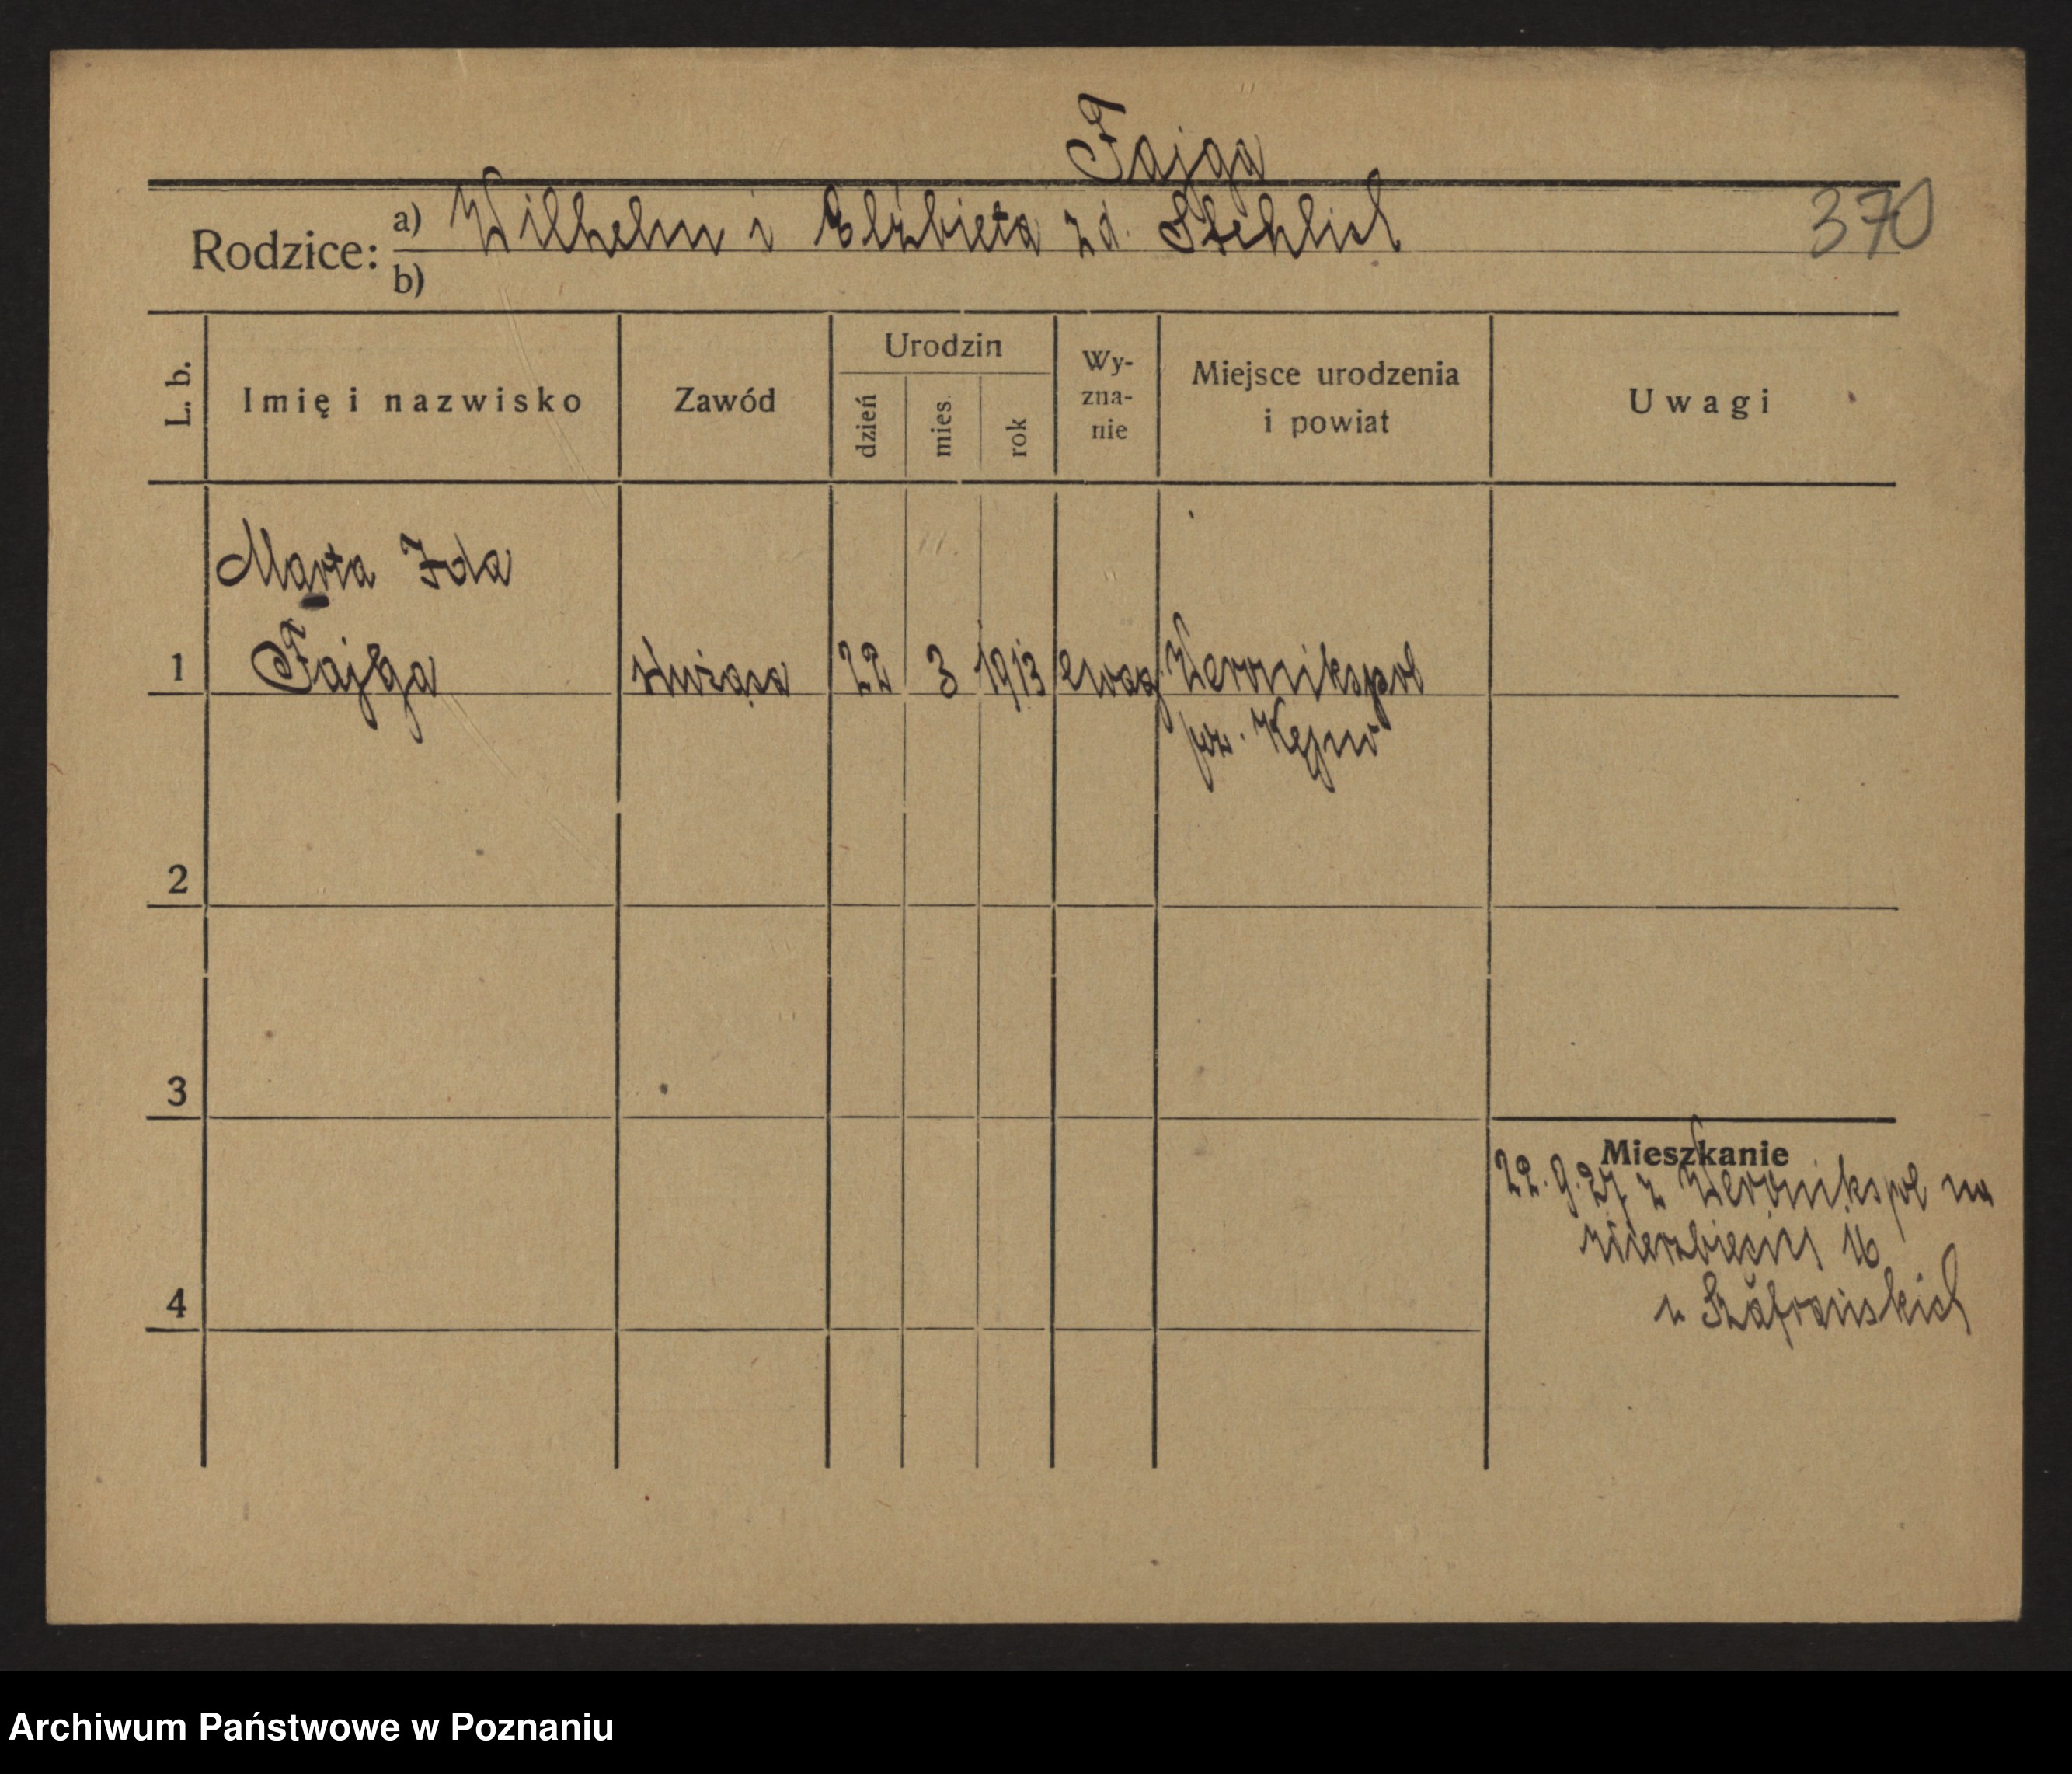 Fajga
Rodzice: a) Wilhelm i Elżbieta z d. Stehlich 370
b)
L. b. Imię i nazwisko Zawód Urodzin dzień mies. rok Wy-zna-nie Miejsce urodzenia i powiat Uwagi
Marta Ida
1 Fajga służąca 22 3 1913 ewag. Weronikopol
pow. Kępno
2
3
Mieszkanie
22.9.27 z Weronikopol na
Wierzbięcice 16
4 u Szafrańskich
Archiwum Państwowe w Poznaniu